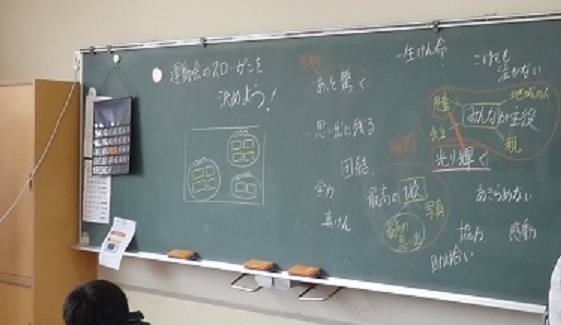 運動会のスローガンを
決めよう!
あっと驚く
思い出に残る
団結
全力
真けん
一生けん命
こけても
泣かない
みんなが主役
地域の人
児童
先生
親
光り輝く
最高の
写真
あきらめない
協力
感動
助け合い